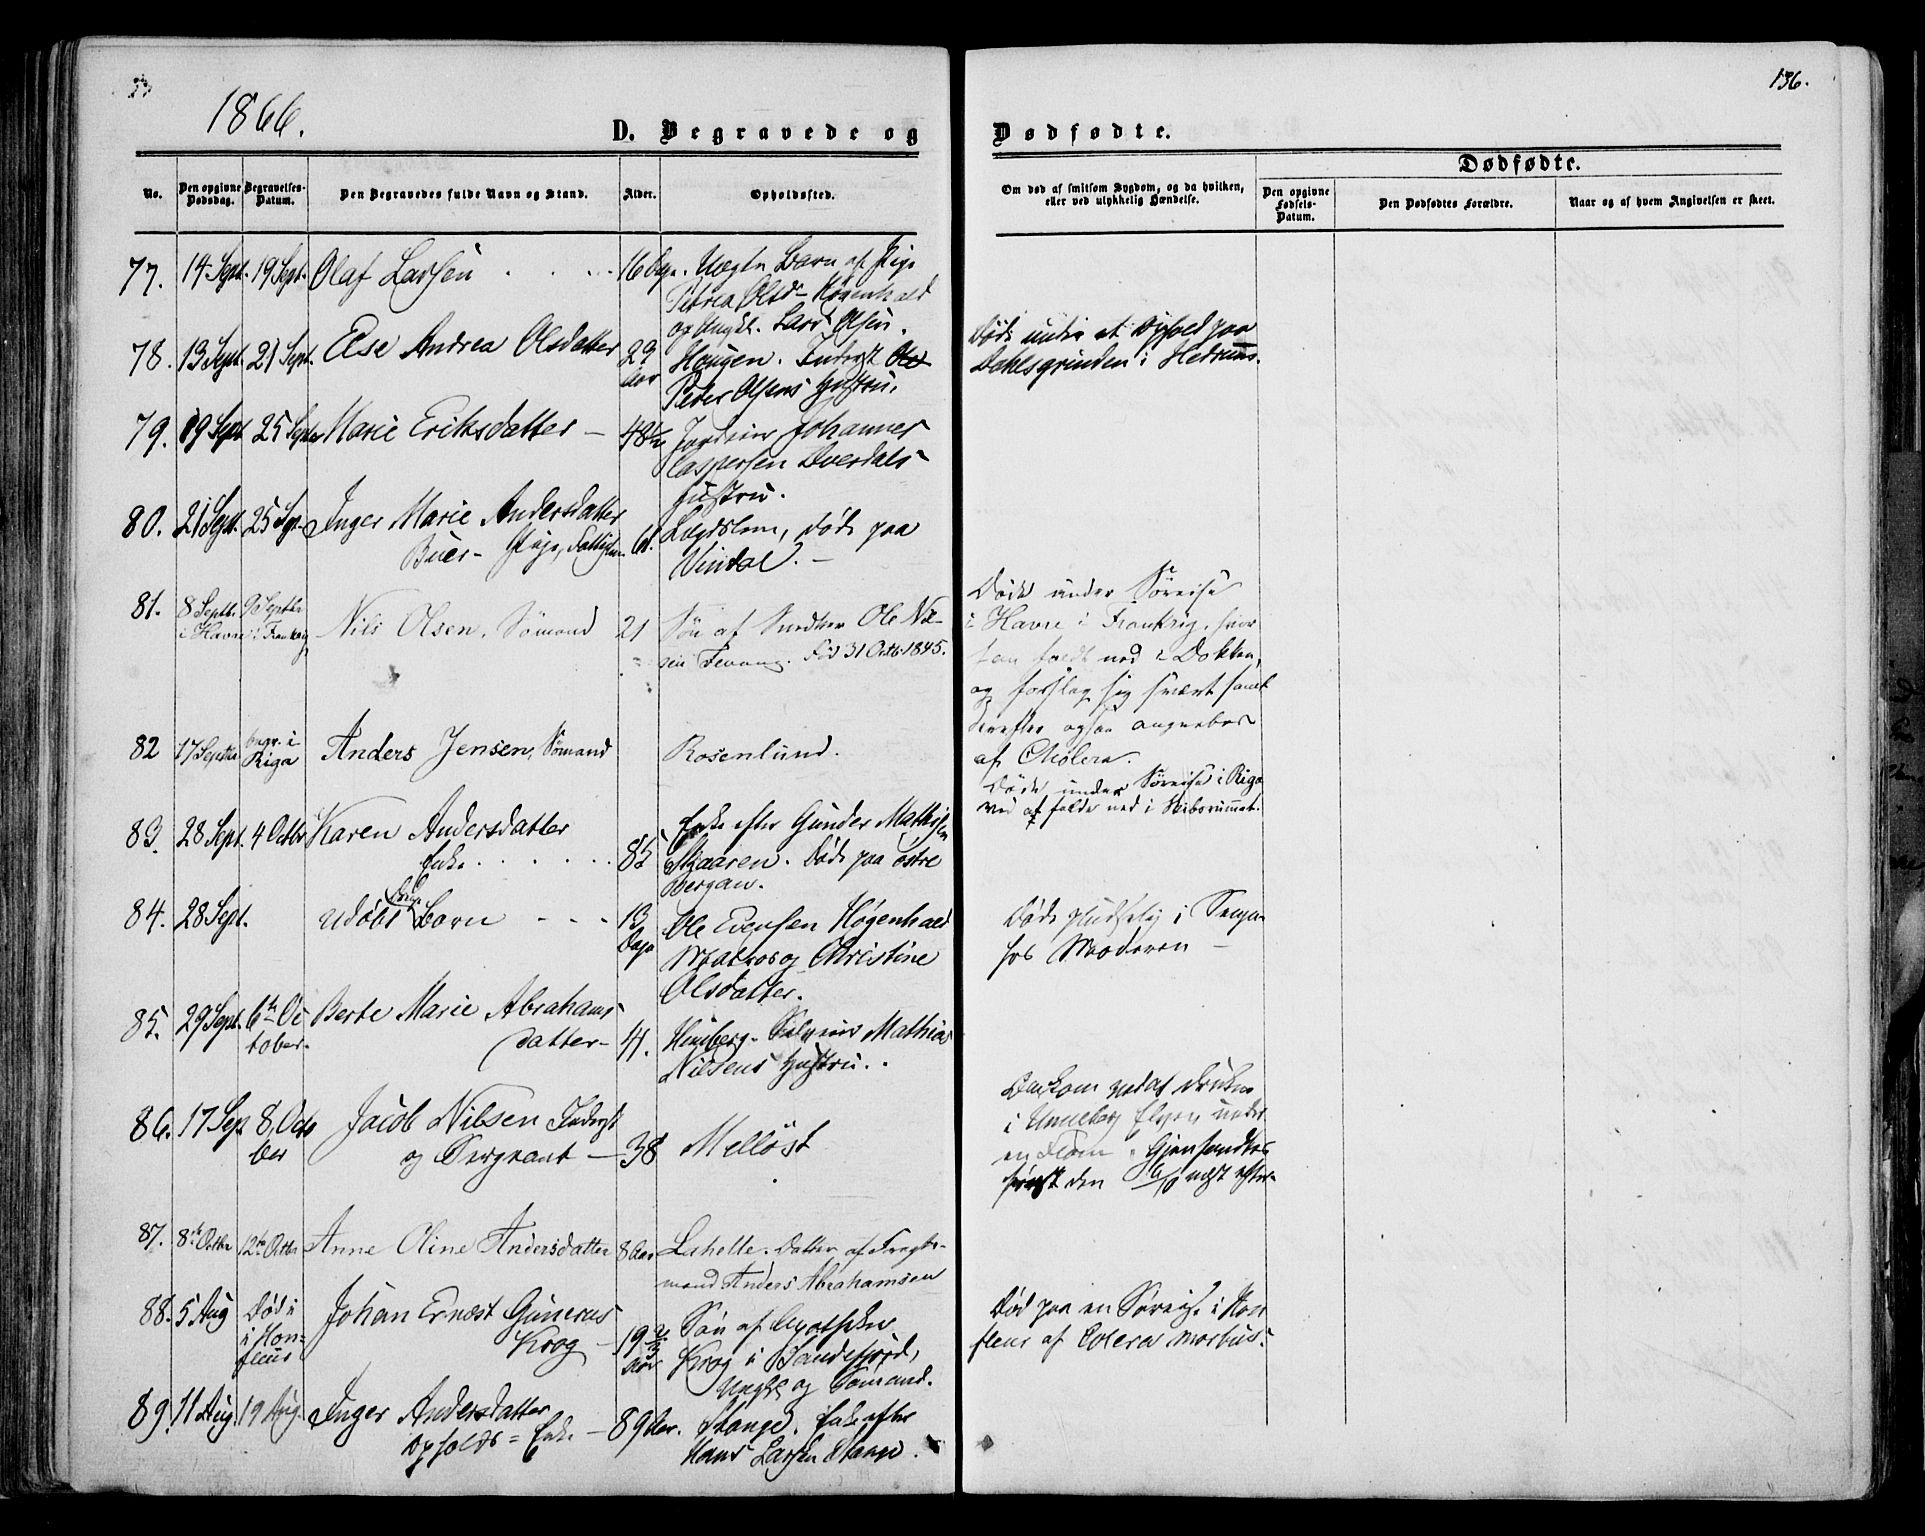 1866.
136.
D. Begravede og Dødfødte.
Dødfødte.
No.
Den opgivne Dødsdag.
Begravelses-Datum.
Den Begravedes fulde Navn og Stand.
Alder.
Opholdssted.
Om død af smitsom Sygdom, og da hvilken, eller ved ulykkelig Hændelse.
Den opgivne Fødsels-Datum.
Den Dødfødtes Forældre.
Naar og af hvem Angivelsen er skeet.
77. 14 Sept. 19 Sept. Olaf Larsen 16 Dge. Uægte Barn af Pige
Petrea Olsd- Høgenhald
og Ungkl. Lars Olsen.
78. 13 Sept. 21 Sept. Else Andrea Olsdatter 29 Aar Haugen. Inderst Ole
Peder Olsens Hustru.
Døde under et Ophold paa
Dahlsgrinden i Hedrum.
79. 19 Sept 25 Septbr Marie Eriksdatter — 48 Johannes
Caspersen Dverdals
Hustru.
80. 21 Sept. 25 Sept. Inger Marie Andersdatter
Buer- Pige, Fattiglem 61. Lægdslem, døde paa
Vindal. —
81. 8 Septbr. i Havre 9 Septbr i Frankrig Nils Olsen, Sømand 21 Søn af Snedker Ole Nil-
sen Fevang. Fød 31 Octb. 1845.
Døde under Søreise
i Havre i Frankrig, hvor
han faldt ned i Dokken,
og forslog sig svært samt
derefter ogsaa angrebes
af Cholera.
82 17 Septbr begr. i Riga Anders Jensen, Sømand Rosenlund.
Døde under Søreise i Riga
ved at falde ned i Skibsrummet.
83. 28 Sept. 4 Octbr Karen Andersdatter
Enke 85 Enke efter Gunder Mathisen
Skjaaren. Døde paa østre
Bergan.
84. 28 Sept. udøbt Barn - - - 13 Dage Ole Evensen Høgenhald
Matros og Christine
Olsdatter.
Døde pludselig i Sengen
hos Moderen —
85. 29 Sept. 6te October. Berte Marie Abrahams
datter- 41. Himberg. Selveier Mathias
Nilsens Hustru.
86. 17 Sep 8 October Jacob Nilsen Inderst
og Sergeant — 38 Melløst
Omkom ved at drukne
i Unneberg Elven under
en Flom. Gjenfandtes
først den 6/10 næst efter-
87. 8de Octbr 12te Octbr Anne Oline Andersdatter 8 Aar Lahelle. Datter af Fragte-
mand Anders Abrahamsen
88. 5 Aug Død i i Honfleur Johan Ernest Gunerus
Krog — 19 Aar Søn af Apotheker
Krog i Sandefjord,
Ungkl og Sømand.
Død paa en Søreise i Hon
fleur af Colera morbus.
89. 11 Aug. 19 Aug. Inger Andersdatter
Opholds = Enke — 89 Aar. Stange. Enke efter
Hans Larsen Stange.